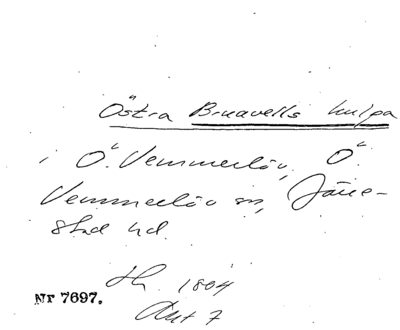 Östra Bruavells kulpa
i Ö. Vemmerlöv, Ö.
Vemmerlöv sn, Järre-
stad hd.
1804
Nr 7697. Akt 7